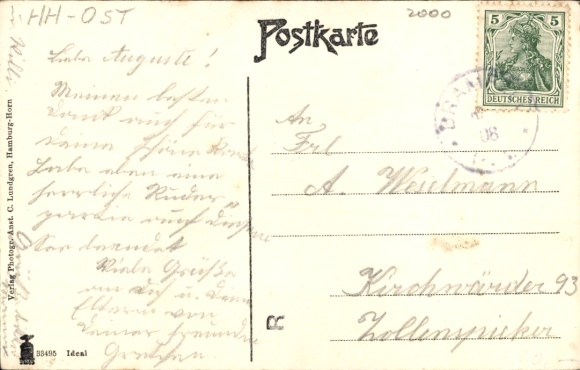 HH-OST
2000
Postkarte
5 5
DEUTSCHES REICH
BRAM
08
Liebe Auguste!
Meinen besten
Dank auch für
Deine schöne Karte
habe eben eine
herrliche Ruder-
partie auf diesem
See beendet
Viele Grüße
an dich u. deine
Eltern von
deiner Freundin
Gretchen
An
Frl
A. Weselmann
Kirchwärder 93
Zollenspieker
Verlag Photogr.-Anst. C. Lundgren, Hamburg-Horn
R
38495 Ideal